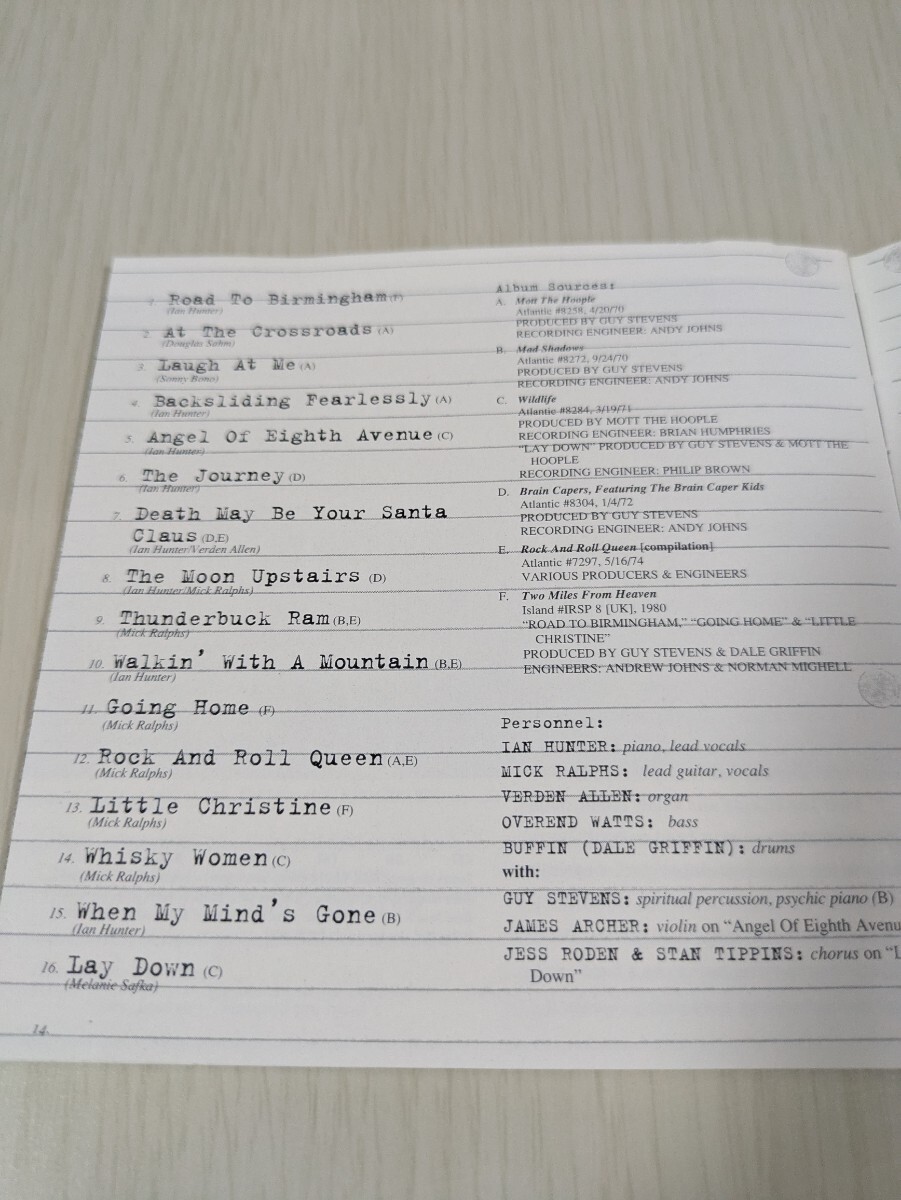 1. Road To Birmingham (F)
(Ian Hunter)
2. At The Crossroads (A)
(Douglas Sahm)
3. Laugh At Me (A)
(Sonny Bono)
4. Backsliding Fearlessly (A)
(Ian Hunter)
5. Angel Of Eighth Avenue (C)
(Ian Hunter)
6. The Journey (D)
(Ian Hunter)
7. Death May Be Your Santa
Claus (D,E)
(Ian Hunter/Verden Allen)
8. The Moon Upstairs (D)
(Ian Hunter/Mick Ralphs)
9. Thunderbuck Ram (B,E)
(Mick Ralphs)
10. Walkin' With A Mountain (B,E)
(Ian Hunter)
11. Going Home (F)
(Mick Ralphs)
12. Rock And Roll Queen (A,E)
(Mick Ralphs)
13. Little Christine (F)
(Mick Ralphs)
14. Whisky Women (C)
(Mick Ralphs)
15. When My Mind's Gone (B)
(Ian Hunter)
16. Lay Down (C)
(Melanie Safka)
14.
Album Sources:
A. Mott The Hoople
Atlantic #8258, 4/20/70
PRODUCED BY GUY STEVENS
RECORDING ENGINEER: ANDY JOHNS
B. Mad Shadows
Atlantic #8272, 9/24/70
PRODUCED BY GUY STEVENS
RECORDING ENGINEER: ANDY JOHNS
C. Wildlife
Atlantic #8284, 3/19/71
PRODUCED BY MOTT THE HOOPLE
RECORDING ENGINEER: BRIAN HUMPHRIES
"LAY DOWN" PRODUCED BY GUY STEVENS & MOTT THE
HOOPLE
RECORDING ENGINEER: PHILIP BROWN
D. Brain Capers, Featuring The Brain Caper Kids
Atlantic #8304, 1/4/72
PRODUCED BY GUY STEVENS
RECORDING ENGINEER: ANDY JOHNS
E. Rock And Roll Queen [compilation]
Atlantic #7297, 5/16/74
VARIOUS PRODUCERS & ENGINEERS
F. Two Miles From Heaven
Island #IRSP 8 [UK], 1980
"ROAD TO BIRMINGHAM," "GOING HOME" & "LITTLE
CHRISTINE"
PRODUCED BY GUY STEVENS & DALE GRIFFIN
ENGINEERS: ANDREW JOHNS & NORMAN MIGHELL
Personnel:
IAN HUNTER: piano, lead vocals
MICK RALPHS: lead guitar, vocals
VERDEN ALLEN: organ
OVEREND WATTS: bass
BUFFIN (DALE GRIFFIN): drums
with:
GUY STEVENS: spiritual percussion, psychic piano (B)
JAMES ARCHER: violin on "Angel Of Eighth Avenu
JESS RODEN & STAN TIPPINS: chorus on "L
Down"